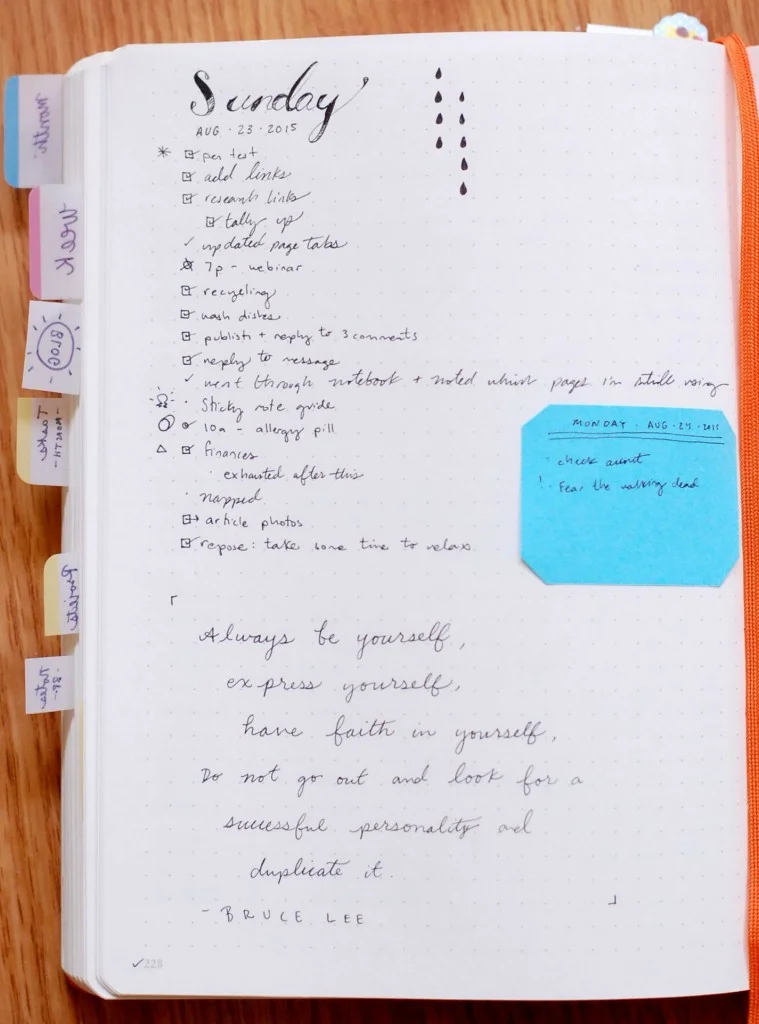 Sunday
AUG · 23 · 2015
pen test
add links
research links
tally up
updated page tabs
7p - webinar
recycling
wash dishes
publish + reply to 3 comments
reply to message
went through notebook + noted which pages i'm still using
Sticky note guide
10a - allergy pill
finances
exhausted after this
napped
article photos
repose: take some time to relax
MONDAY · AUG · 24 · 2015
check
! Fear the walking dead
Always be yourself,
express yourself,
have faith in yourself,
Do not go out and look for a
successful personality and
duplicate it.
- BRUCE LEE
228
Week
BLOG
-MONTH-
Tasks
Projects